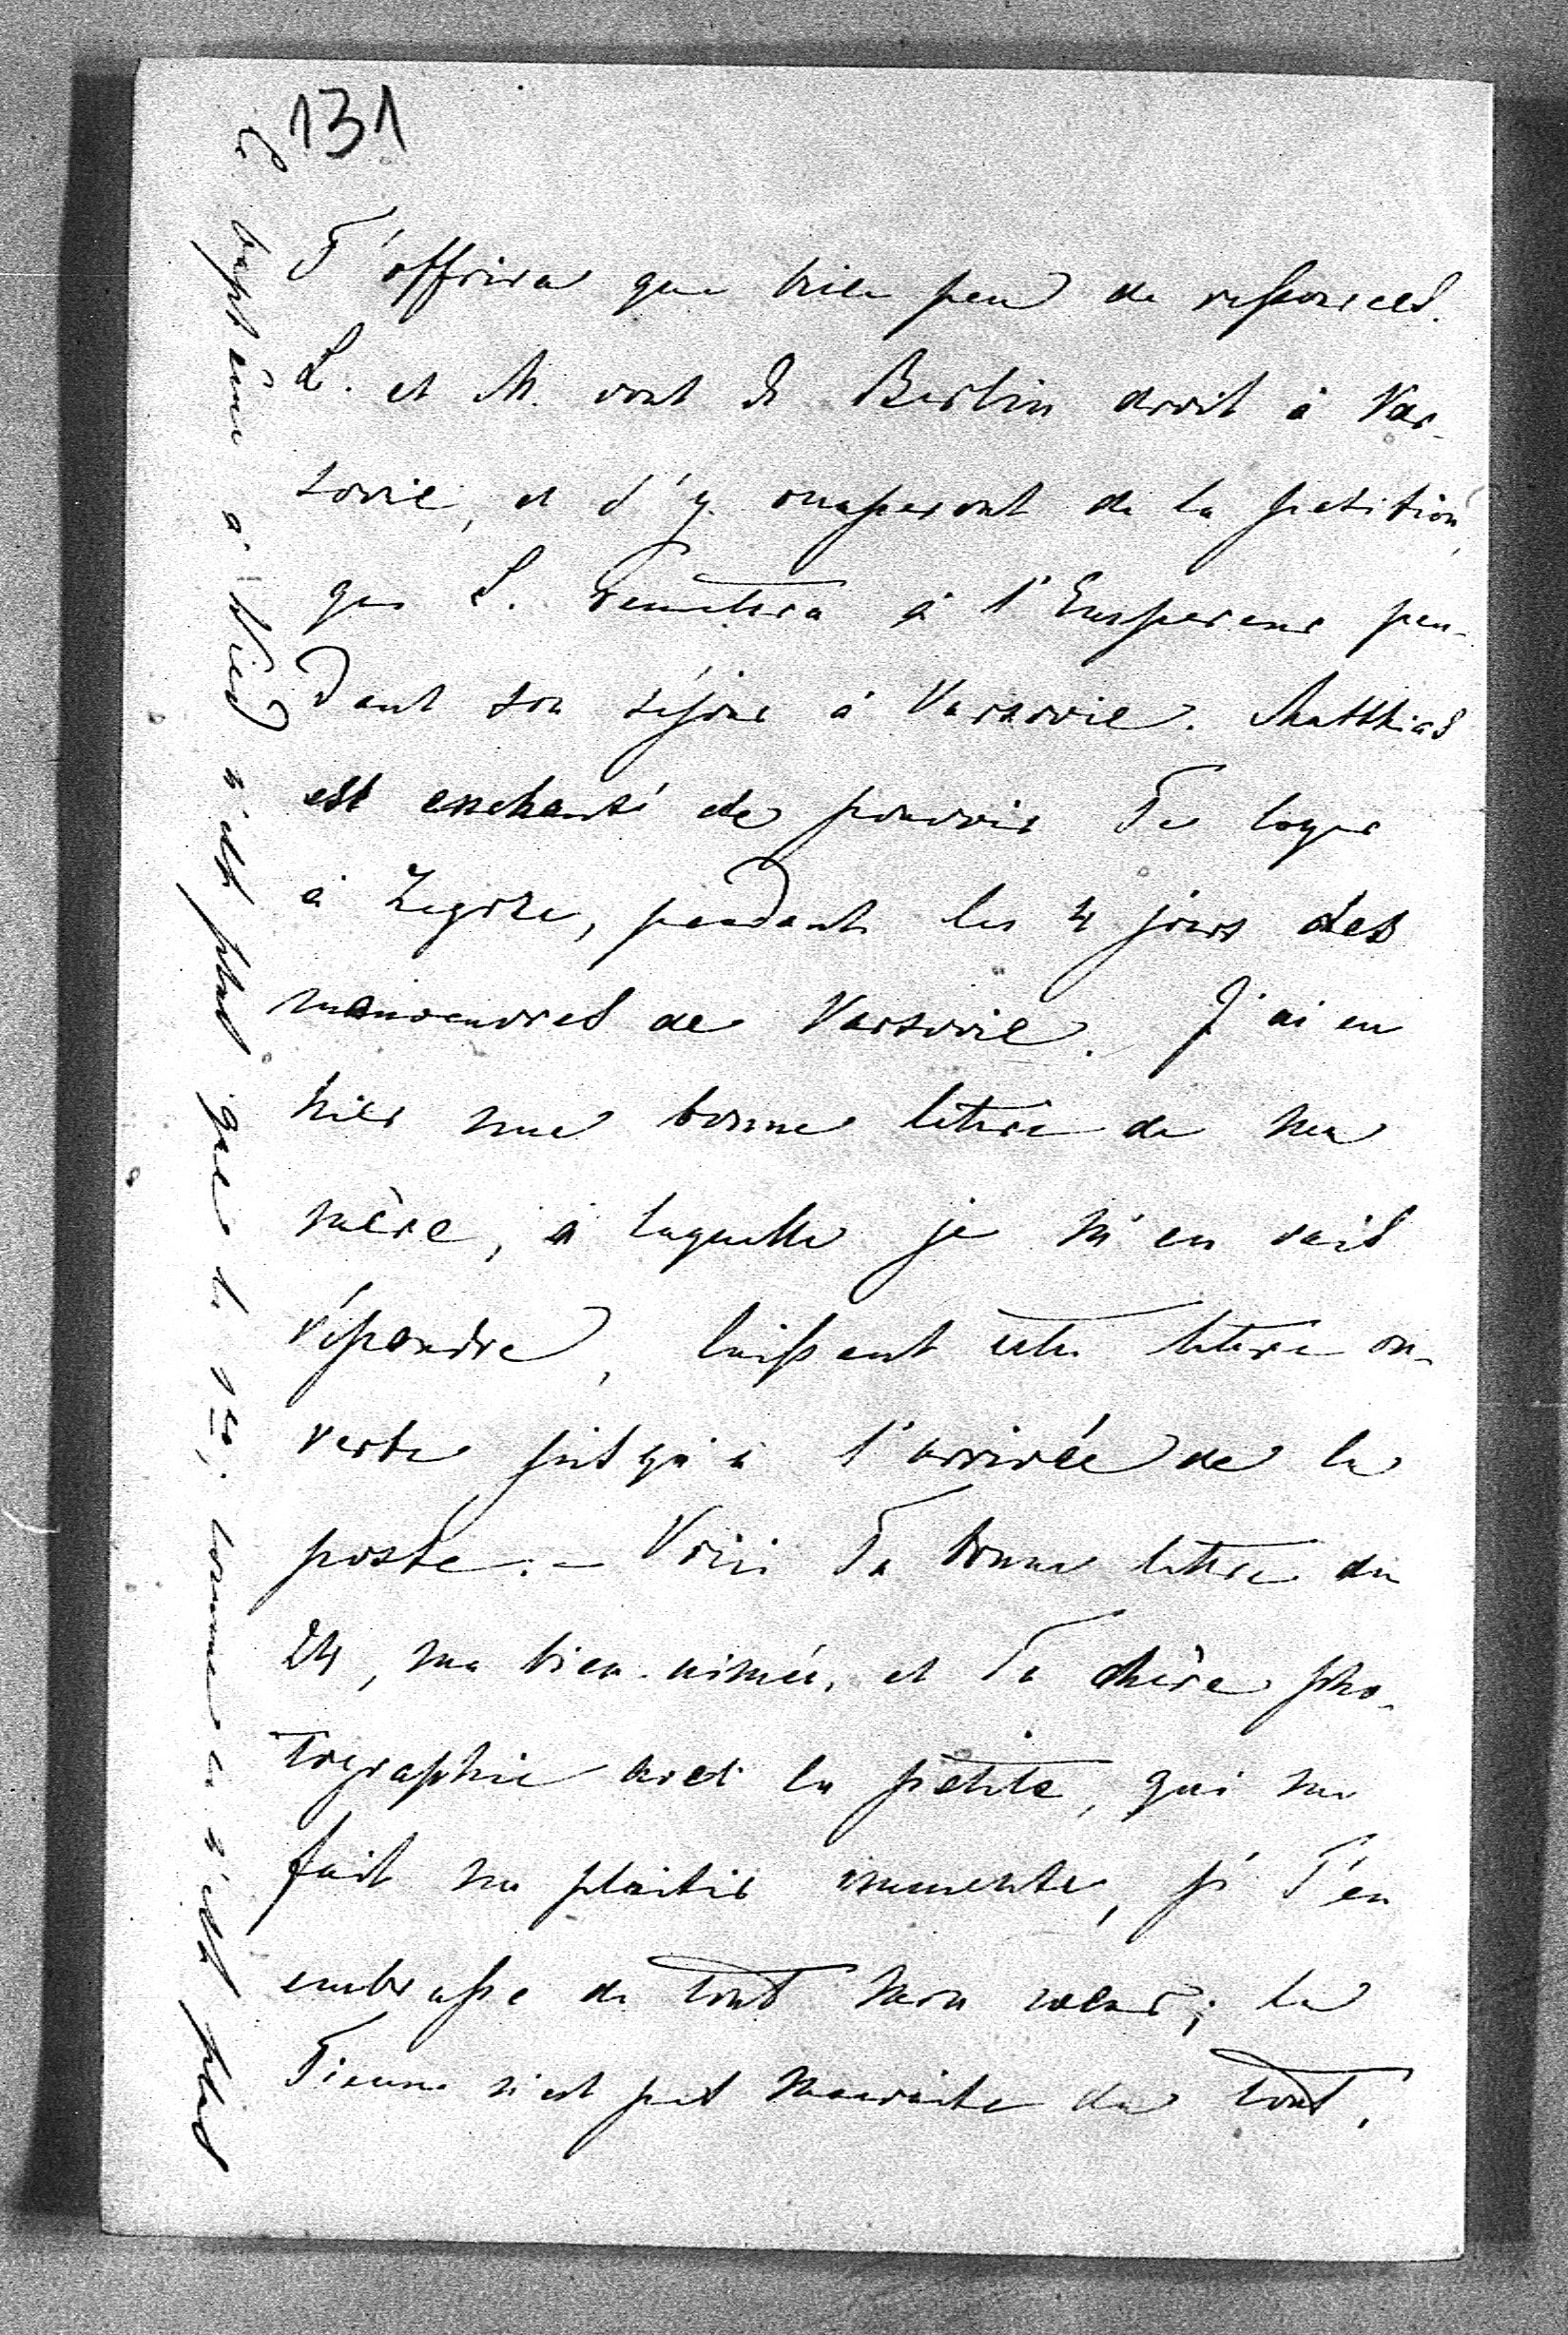 131
T'offrira que bien peu de ressources.
L. et M. vont de Berlin droit à Var-
sovie, et s'y occuperont de la petition,
que L. remettra à l'Empereur pen-
dant son séjour à Varsovie. Matthias
est enchanté de pouvoir Te loger
à Zegrze, pendant les 4 jours des
manoeuvres de Varsovie. J'ai eu
hier une bonne lettre de ma
mère, à laquelle je m'en vais
répondre, laissant cette lettre ou-
verte jusqu'à l'arrivée de la
poste. – Voici Ta bonne lettre du
24, ma bien-aimée, et Ta chère pho-
tographie avec la petite, qui me
fait un plaisir immense, je T'en
embrasse de tout mon coeur; la
Tienne n'est pas mauvaise du tout.
Le baptême à Nied n'est plus que le 1er, comme ce n'est plus